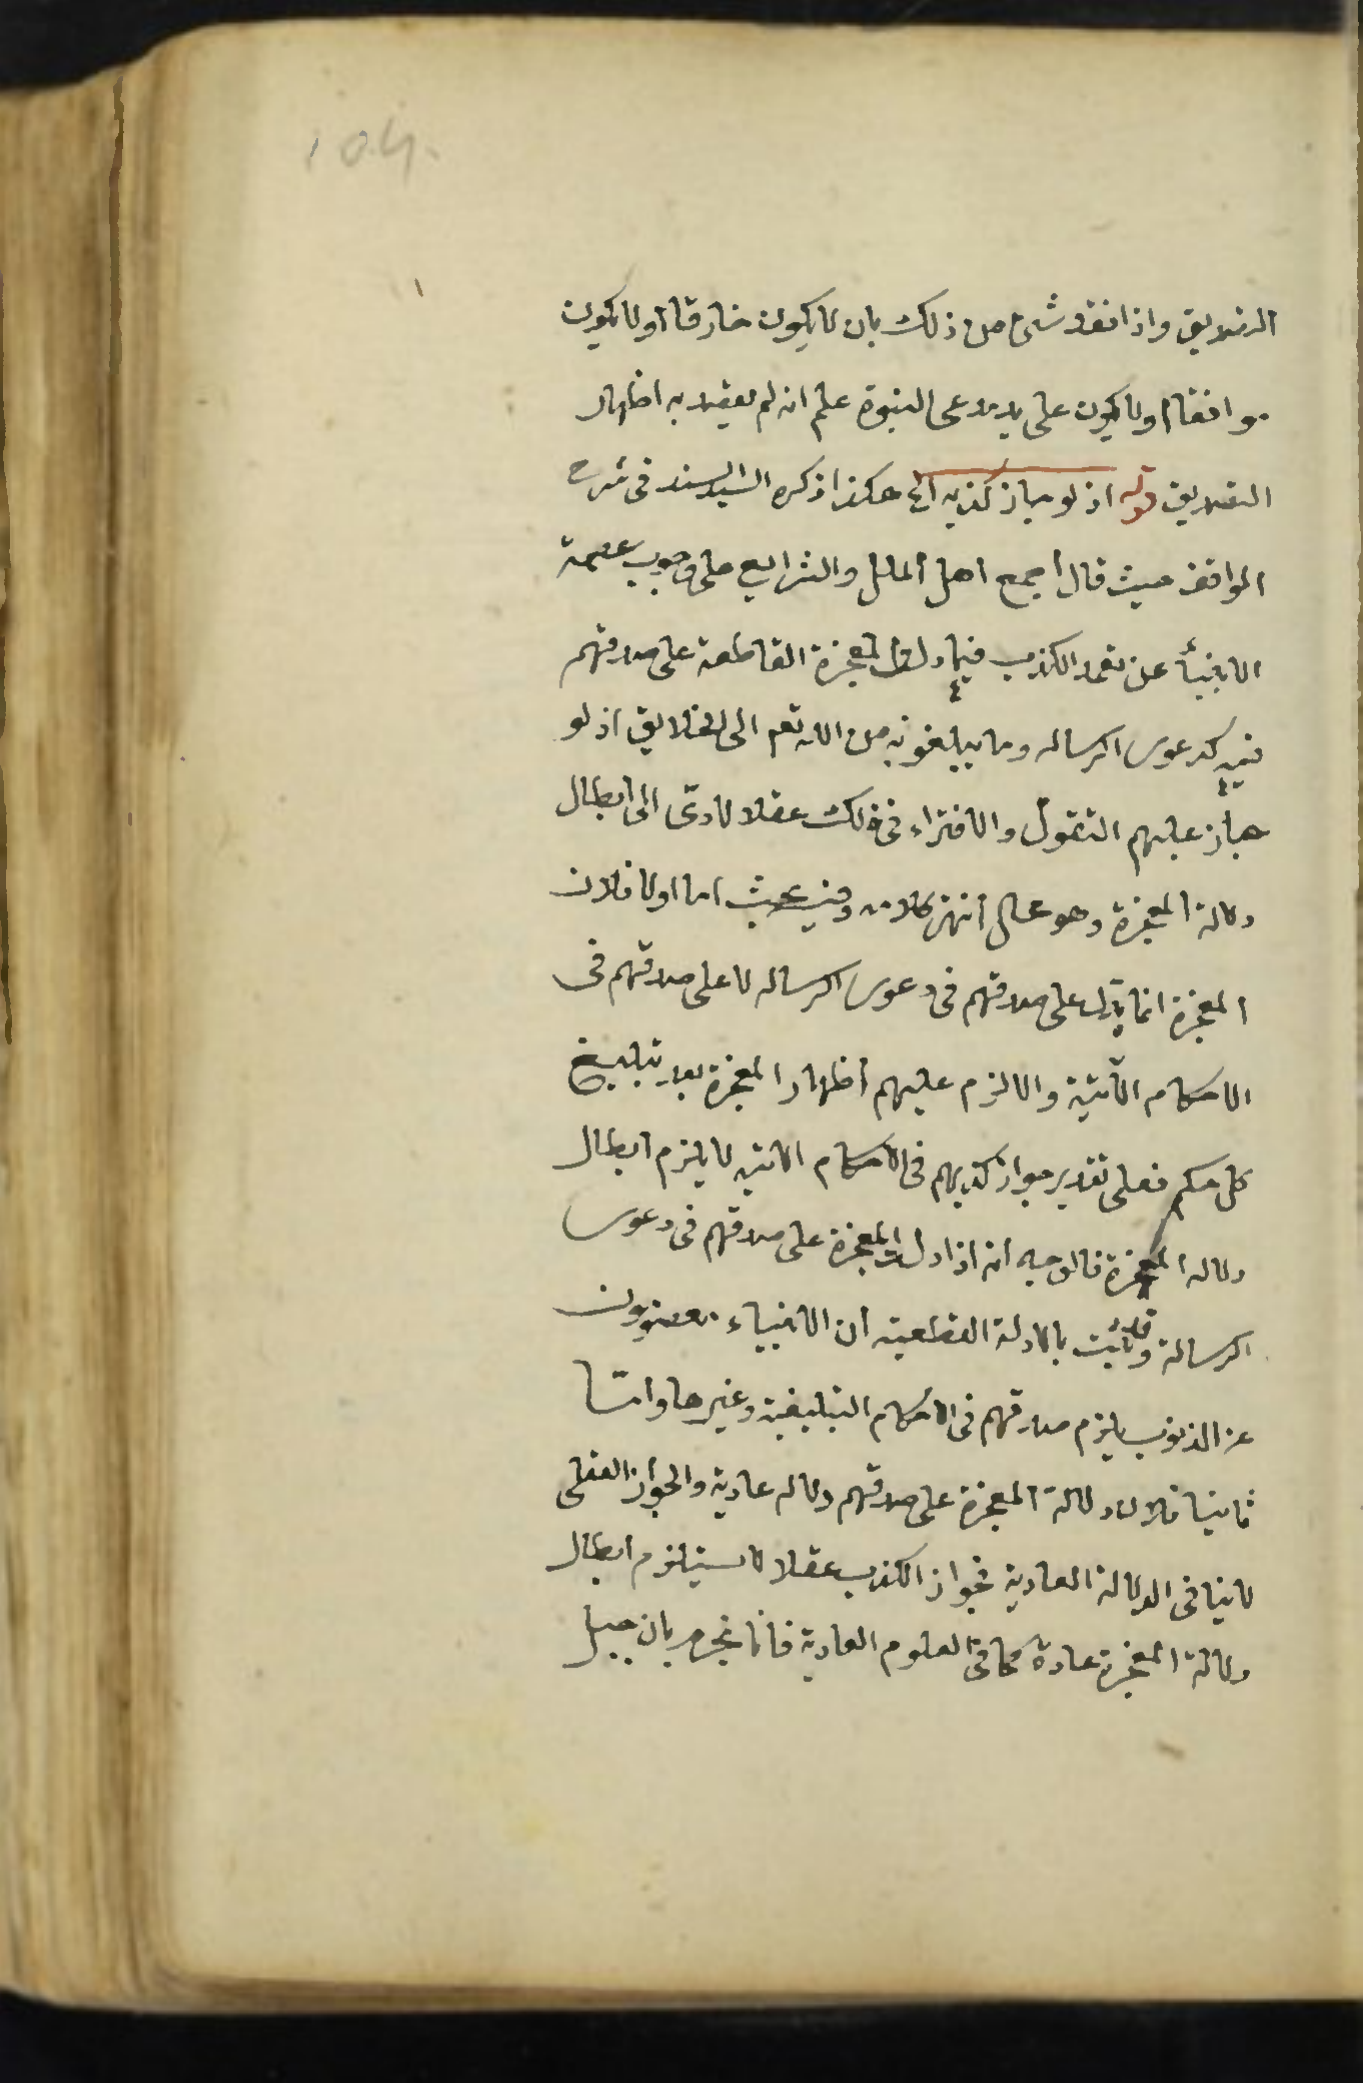 التصديق واذا فقد شئ من ذلك بان لا يكون خارقا اولا يكون
موافقا اولا يكون على يد مدعى النبوة علم انه لم يقصد به اظهار
التصديق قوله اذ لو جاز كذبه الخ هكذا ذكره السيد السند فى شرح
المواقف حيث قال أجمع اهل الملل والشرايع على وجوب عصمة
الانبياء عن تعمد الكذب فيما دلت المعجزة القاطعة على صدقهم
فيه كدعوى الرسالة وما يبلغونه من الله تعم الى الخلايق اذ لو
جاز عليهم التقول والافتراء فى ذلك عقلا لادى الى ابطال
دلالة المعجزة وهو محال أنتهى كلامه وفيه بحث اما اولا فلان
المعجزة انما يدل على صدقهم فى دعوى الرسالة لا على صدقهم فى
الاحكام الآتية والا لزم عليهم أظهار المعجزة بعد تبليغ
كل حكم فعلى تقدير جواز كذبهم فى الاحكام الاتية لا يلزم ابطال
دلالة المعجزة فالوجه انه اذا دلت المعجزة على صدقهم فى دعوى
الرسالة وقد ثبت بالادلة القطعية ان الانبياء معصومون
عن الذنوب يلزم صدقهم فى الاحكام التبليغية وغيرها وامّا
ثانيا فلان دلالة المعجزة على صدقهم دلالة عادية والجواز العقلى
لا ينافى الدلالة العادية فجواز الكذب عقلا لا يستلزم ابطال
دلالة المعجزة عادة كما فى العلوم العادية فانا نجزم بان جبل